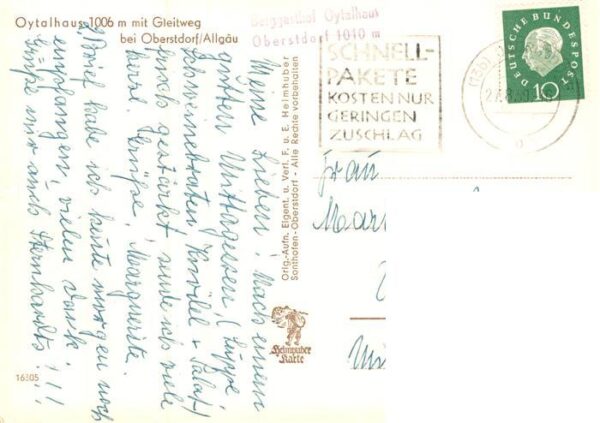 Oytalhaus 1006 m mit Gleitweg
bei Oberstdorf/Allgäu
Berggasthof Oytalhaus
Oberstdorf 1010 m
SCHNELL-
PAKETE
KOSTEN NUR
GERINGEN
ZUSCHLAG
DEUTSCHE BUNDESPOST
10
Meine Lieben! Nach einem
guten Mittagessen (Suppe,
Schweinebraten Knödel + Salat)
frisch gestärkt sende ich viele
herzl. Grüße, Marguerite.
Brief habe ich heute morgen noch
empfangen, vielen Dank!
Grüße mir auch Bernhards!!!
Orig.-Aufn. Eigent. u. Verl. F. u. E. Heimhuber
Sonthofen-Oberstdorf - Alle Rechte vorbehalten
Frau
Heimhuber
Karte
16305